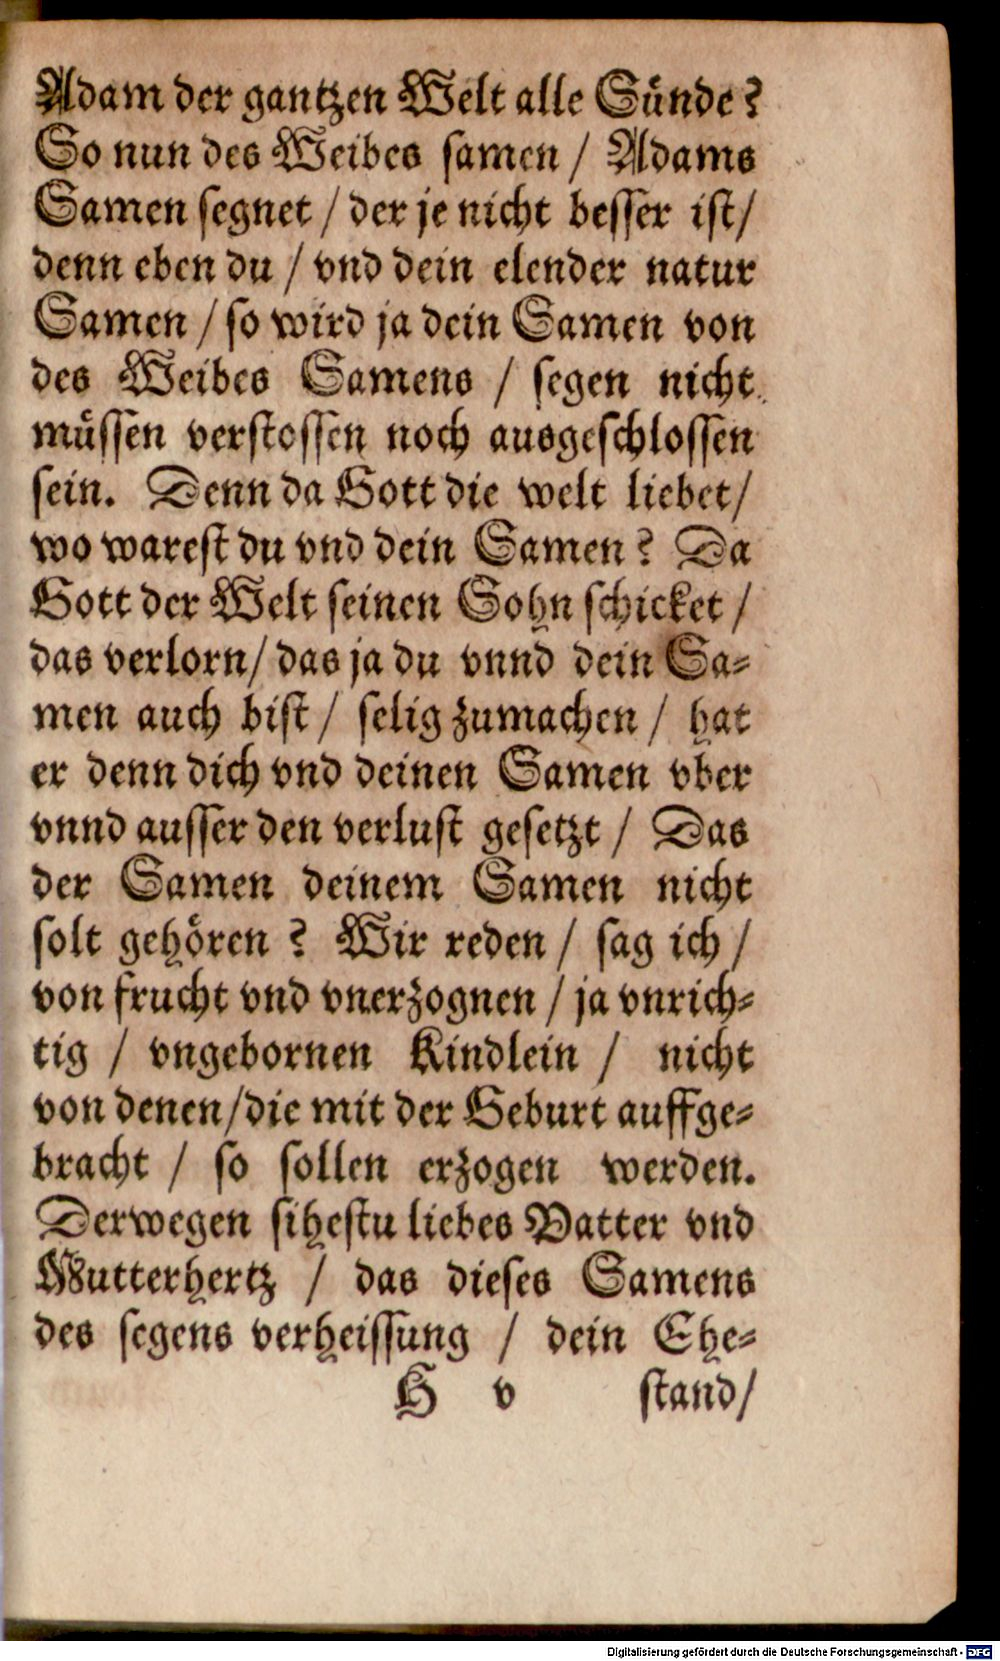 Adam der gantzen Welt alle Sünde?
So nun des Weibes samen / Adams
Samen segnet / der je nicht besser ist/
denn eben du / vnd dein elender natur
Samen / so wird ja dein Samen von
des Weibes Samens / segen nicht
müssen verstossen noch ausgeschlossen
sein. Denn da Gott die welt liebet/
wo warest du vnd dein Samen? Da
Gott der Welt seinen Sohn schicket /
das verlorn/ das ja du vnnd dein Sa-
men auch bist / selig zumachen / hat
er denn dich vnd deinen Samen vber
vnnd ausser den verlust gesetzt / Das
der Samen deinem Samen nicht
solt gehören? Wir reden / sag ich /
von frucht vnd vnerzognen / ja vnrich-
tig / vngebornen Kindlein / nicht
von denen/die mit der Geburt auffge-
bracht / so sollen erzogen werden.
Derwegen sihestu liebes Vatter vnd
Mutterhertz / das dieses Samens
des segens verheissung / dein Ehe-
H v stand/
Digitalisierung gefördert durch die Deutsche Forschungsgemeinschaft - DFG